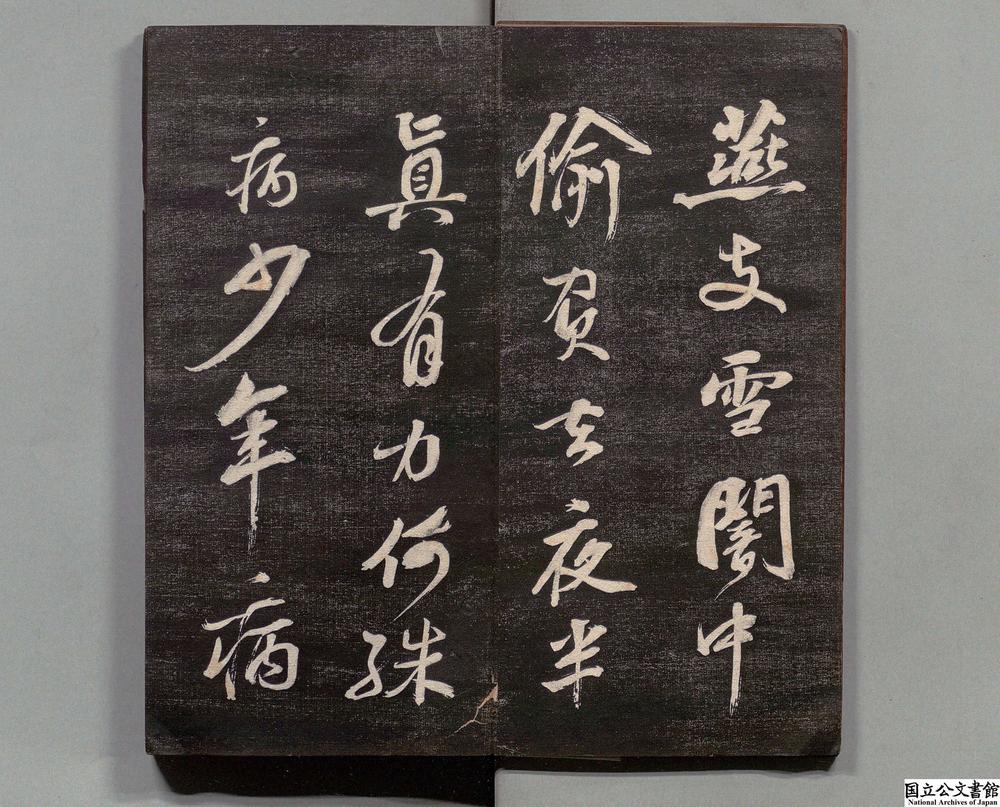 燕支雪闇中
偷負去夜半
眞有力何殊
病少年病
国立公文書館
National Archives of Japan